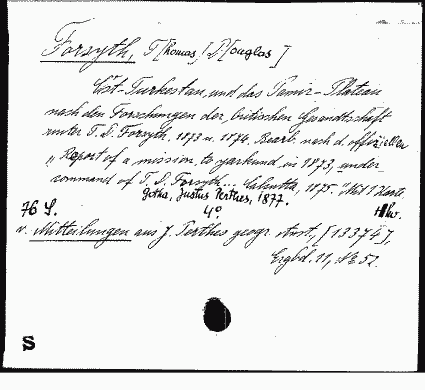 Forsyth, T[homas] D[ouglas]
Ost-Turkestan, und das Pamir-Plateau
nach den Forschungen der britischen Gesandtschaft
unter T. D. Forsyth, 1873 u. 1874. Bearb. nach d. offiziellen
"Report of a mission to Yarkund in 1873, under
command of T. D. Forsyth... Calcutta, 1875." Mit 1 Karte.
Gotha, Justus Perthes, 1877.
76 S. 4°
v. Mitteilungen aus J. Perthes geogr. Anst., [13374],
Ergbd. 11, № 52.
S